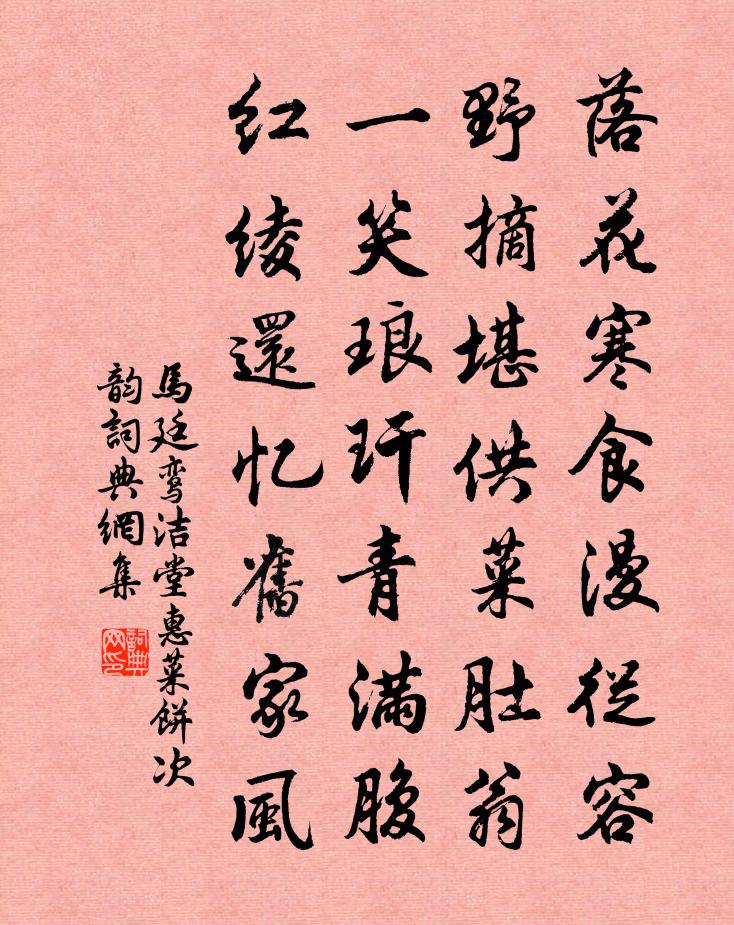 落花寒食漫從容
野摘堪供菜肚翁
一笑琅玕青滿腹
紅綾還忆舊家風
馬廷鸾洁堂惠菜餅次
韵詞典網集
詞典网印